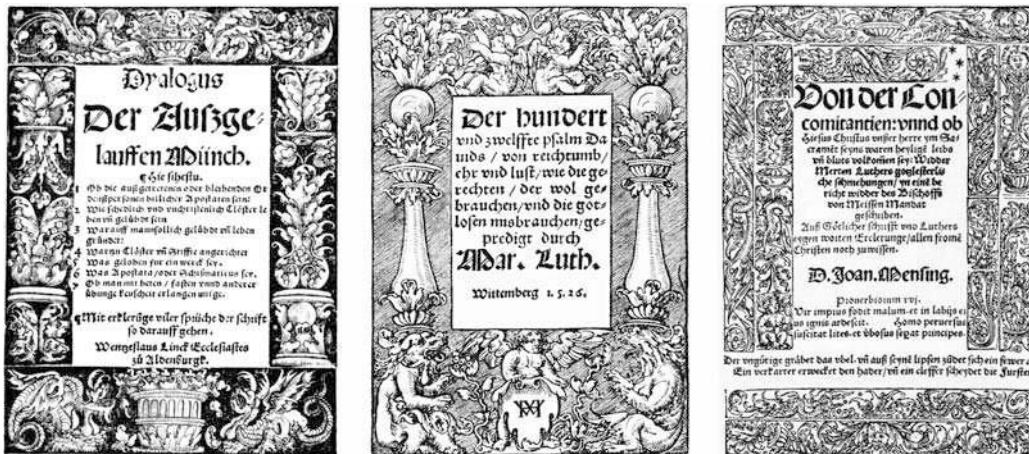 Dyalogus
Der Auszge-
lauffen Münch.
¶ Hie sihestu.
1 Ob die außgetretenen oder bleibenden Or
denspersonen billicher Apostaten sein:
2 Wie schedlich vnd vnchristenlich Clöster le
ben vñ gelübdt sein
3 Warauff mannsollich gelübdt vñ leben
gründet:
4 Warzu Clöster vñ Stiffte angerichtet
5 Was geloben für ein werck sey.
6 Was Apostata/oder Schismaticus sey.
7 Ob man mit beten / fasten vnnd anderer
übunge keuscheit erlangen müge.
¶ Mit erklerüge viler sprüche der schrifft
so darauff gehen.
Wentzeslaus Linck Ecclesiastes
zů Aldenburgk.
Der hundert
vnd zwelffte psalm Da
uids / von reichtumb/
ehr vnd lust/ wie die ge-
rechten / der wol ge-
brauchen/ vnd die got-
losen misbrauchen/ge-
predigt durch
Mar. Luth.
Wittemberg 1. 5. 26.
Von der Con-
comitantien: vnnd ob
Hiesus Christus vnßer herre ym Sa-
cramēt seyns waren heylige leibs
vñ bluts volkomen sey: Widder
Merten Luthers goglesterli
che schmehungen/ yn eine be
richt widder des Bischoffs
von Meissen Mandat
geschriben.
Auß Götlicher schrifft vnd Luthers
eygen worten Erclerunge/allen fromē
Christen noth zuwissen.
D. Joan. Mensing.
Prouerbiorum xvj.
Vir impius fodit malum. et in labijs ei
us ignis ardescit. Homo peruersus
suscitat lites. et vbosus sepat principes.
Der vngütige gräbet das vbel. vñ auß seynē lipsen zůdet sich ein fewer
Ein verkarter erwecket den hader/ vñ ein cleffer scheydet die Fursten